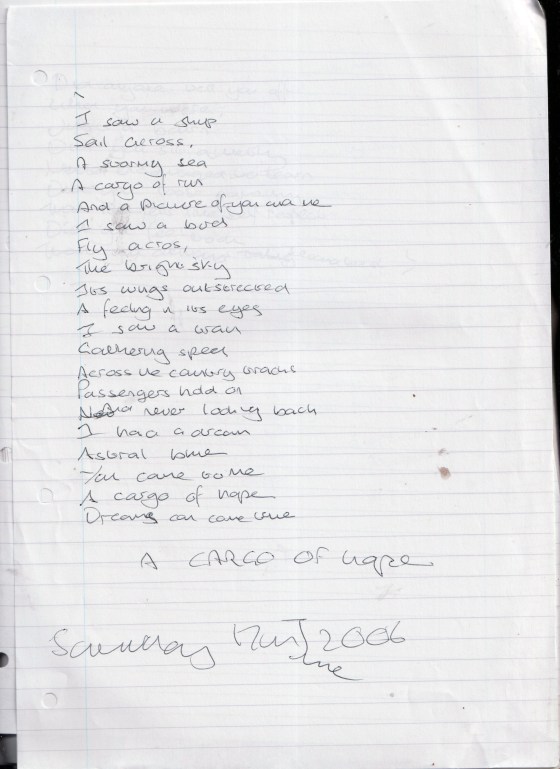 I saw a ship
Sail across,
A stormy sea
A cargo of rum
And a picture of you and me
I saw a bird
Fly across,
The bright sky
Its wings outstretched
A feeling in its eyes
I saw a train
Gathering speed
Across the country tracks
Passengers hold on
And never looking back
I had a dream
Astral time
You came to me
A cargo of hope
Dreams can come true
A CARGO OF hope
Saturday June 2006